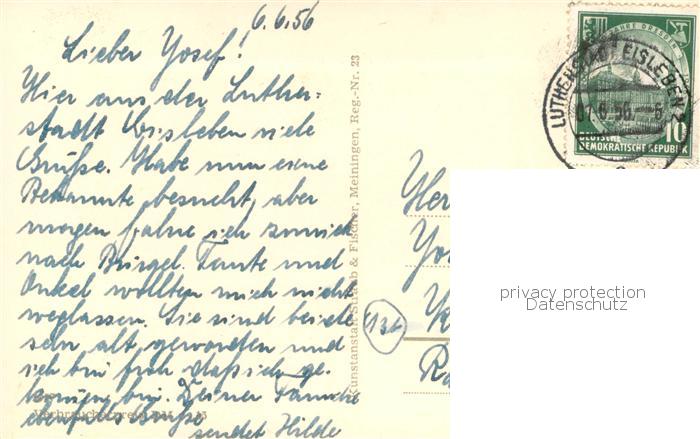 6.6.56
Lieber Yosef!
Hier aus der Luther=
stadt Eisleben viele
Grüße. Habe nun eine
Bekannte besucht, aber
morgen fahre ich zurück
nach Bürgel. Tante und
Onkel wollten mich nicht
weglassen. Sie sind beide
sehr alt geworden und
ich bin froh daß ich ge-
kommen bin. Deiner Familie
ebenfalls Grüße
sendet Hilde
Verbraucherpreis
Kunstanstalt Straub & Fischer, Meiningen, Reg.-Nr. 23
LUTHERSTADT EISLEBEN 2
DRESDEN
10
DEUTSCHE
DEMOKRATISCHE REPUBLIK
Her
Yo
13b
K
Ra
privacy protection
Datenschutz